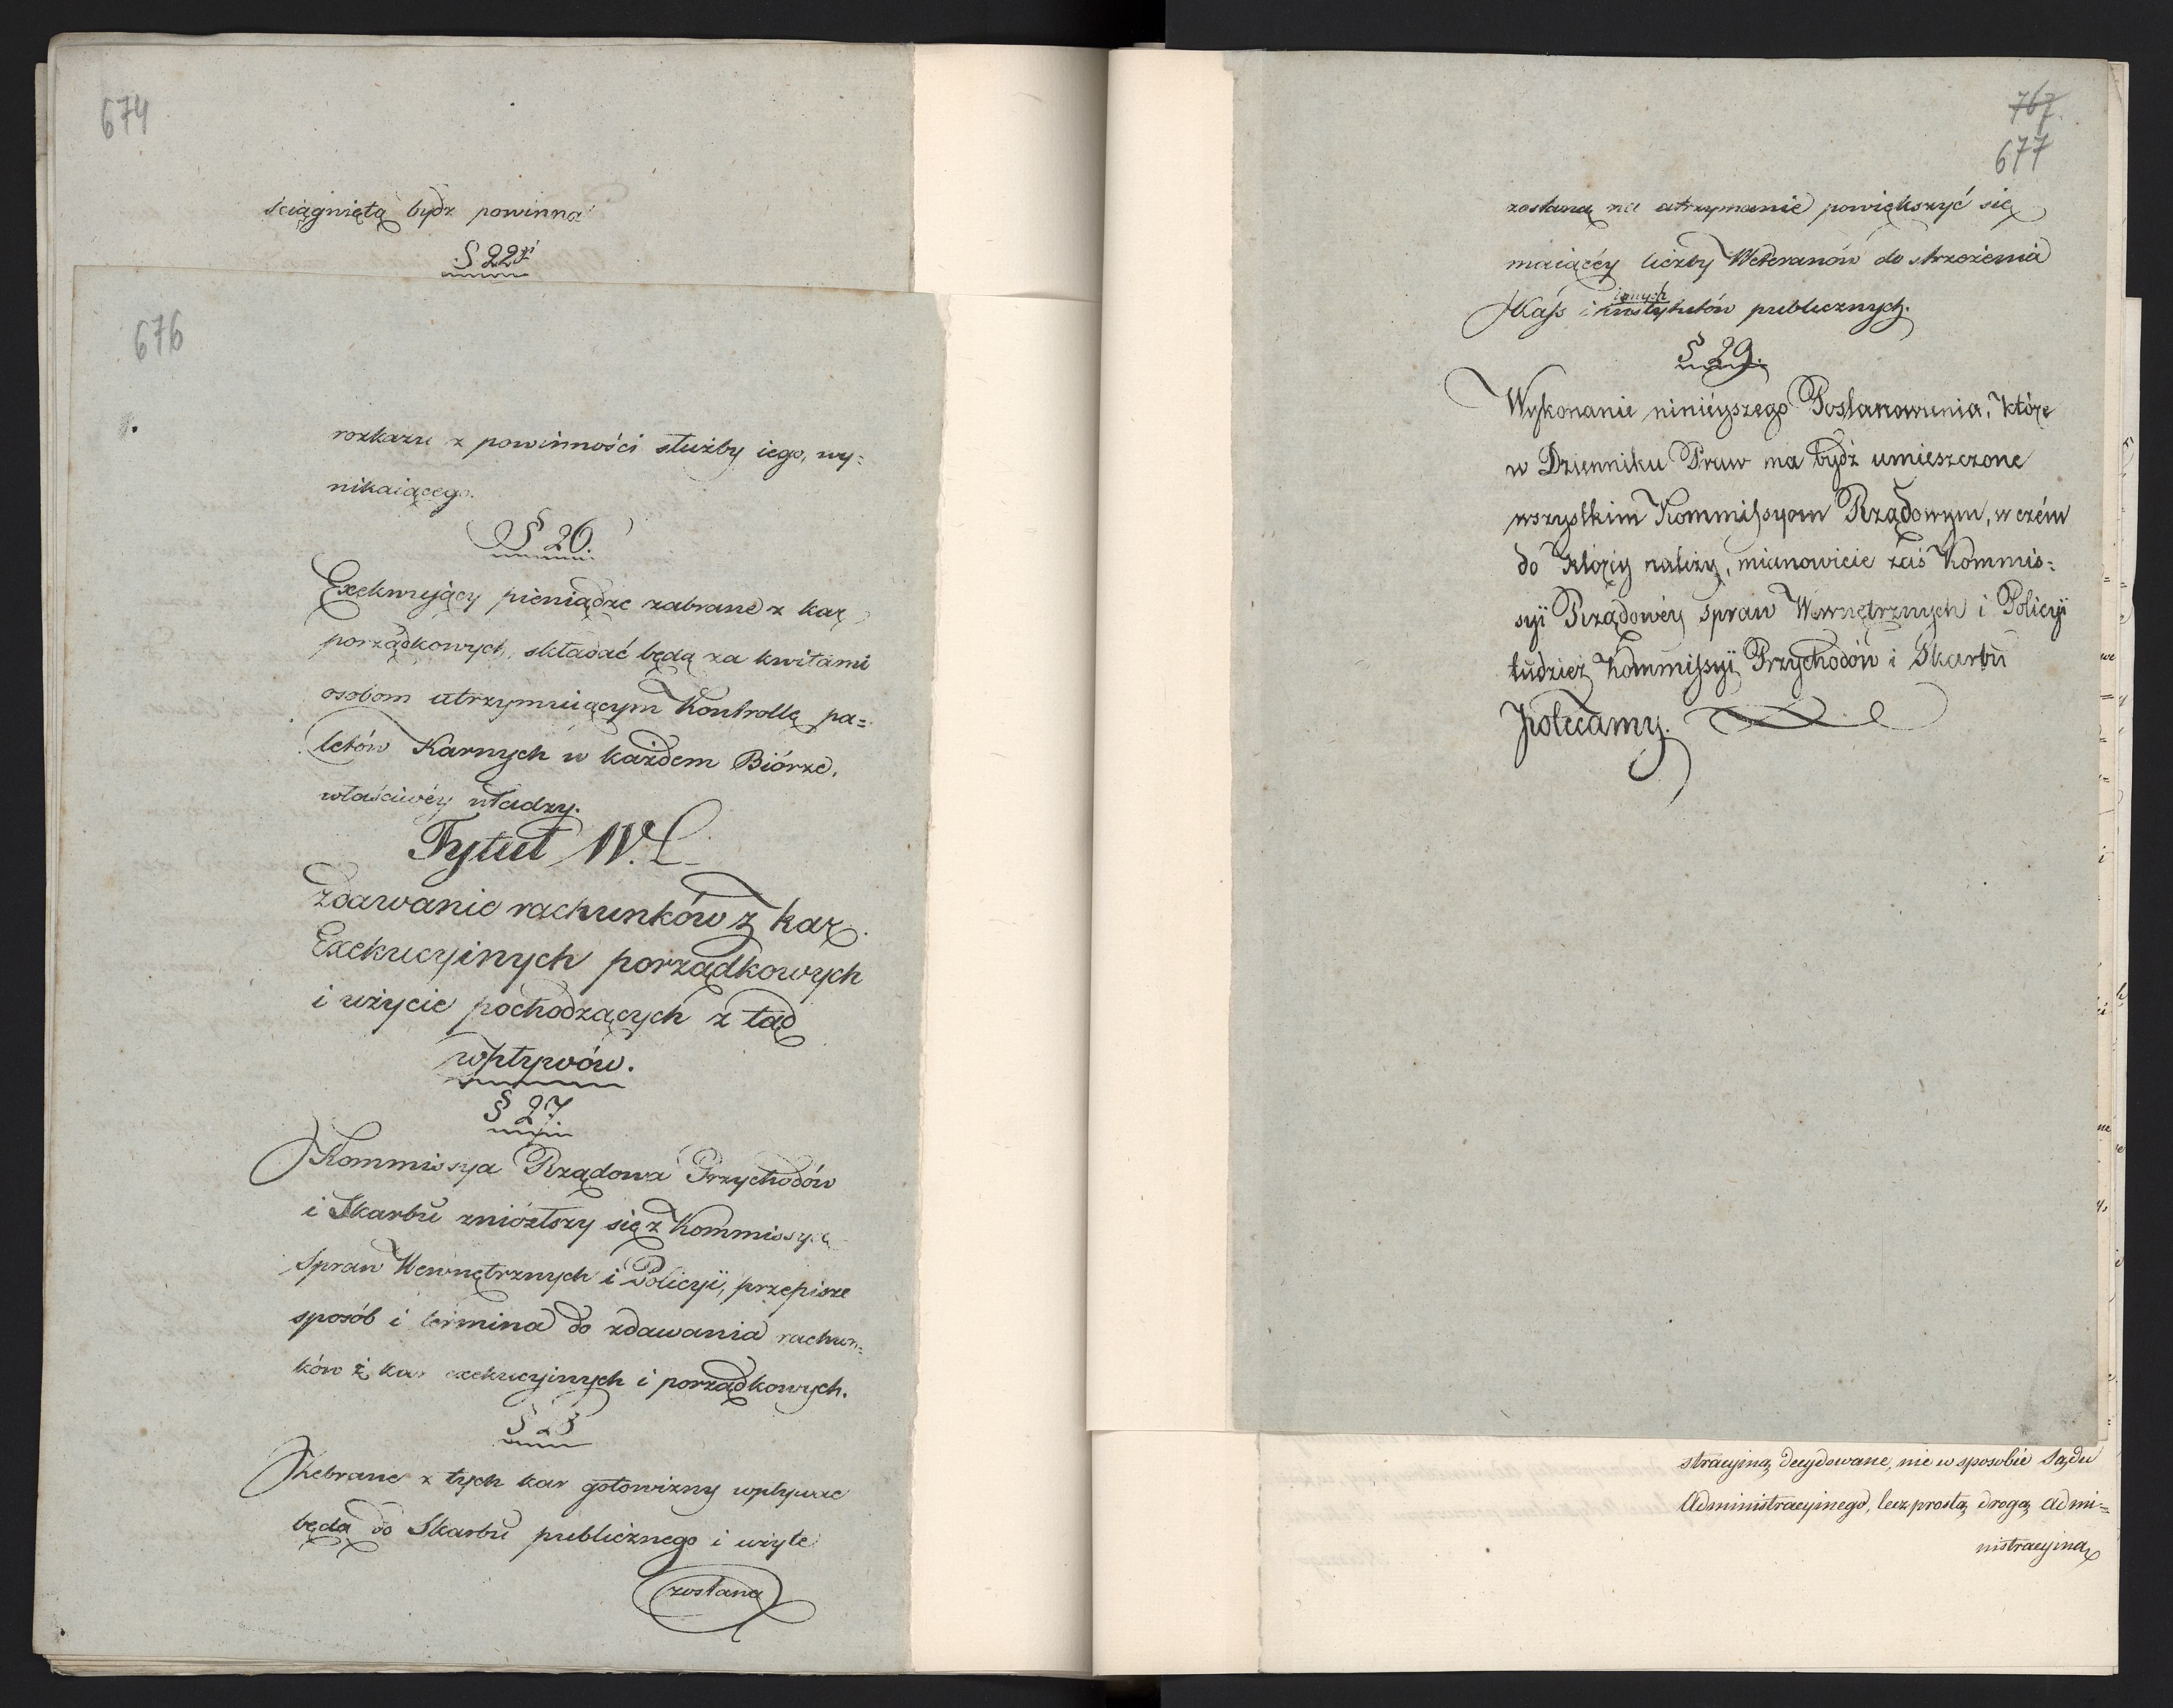 674
ściągniętą bydź powinna
§ 22gi
676
rozkazu z powinności służby iego, wy=
nikaiącego.
§ 26.
Exekwuiący pieniądze zabrane z kar
porządkowych, składać będą za kwitami
osobom utrzymuiącym Kontrollę pa=
letów Karnych w każdem Biórze,
właściwéy władzy.
Tytuł IV.
zdawanie rachunków z kar
Exekucyinych porządkowych
i użycie pochodzących z tąd
wpływów.
§ 27.
Kommissya Rządowa Przychodów
i Skarbu zniózłszy się z Kommissyą
Spraw Wewnętrznych i Policyi, przepisze
sposób i termina do zdawania rachun=
ków z kar exekucyinych i porządkowych.
§ 28
Zebrane z tych kar gotowizny wpływać
będą do Skarbu publicznego i użyte
zostaną
767.
677
zostaną na utrzymanie powiększyć się
maiącéy liczby Weteranów do strzeżenia
Kass i innych instytutów publicznych.
§ 29.
Wykonanie ninieyszego Postanowienia, które
w Dzienniku Praw ma bydź umieszczone
wszystkim Kommissyom Rządowym, w czém
do któréy należy, mianowicie zaś Kommis=
syi Rządowéy Spraw Wewnętrznych i Policyi
tudzież Kommissyi Przychodów i Skarbu
polecamy.
stracyiną decydowane, nie w sposobie Sądu
Administracyinego, lecz prostą drogą admi=
nistracyiną